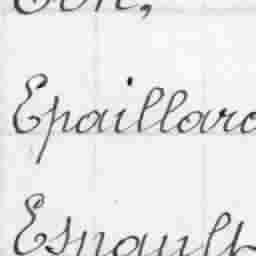 Epaillard
Esnault